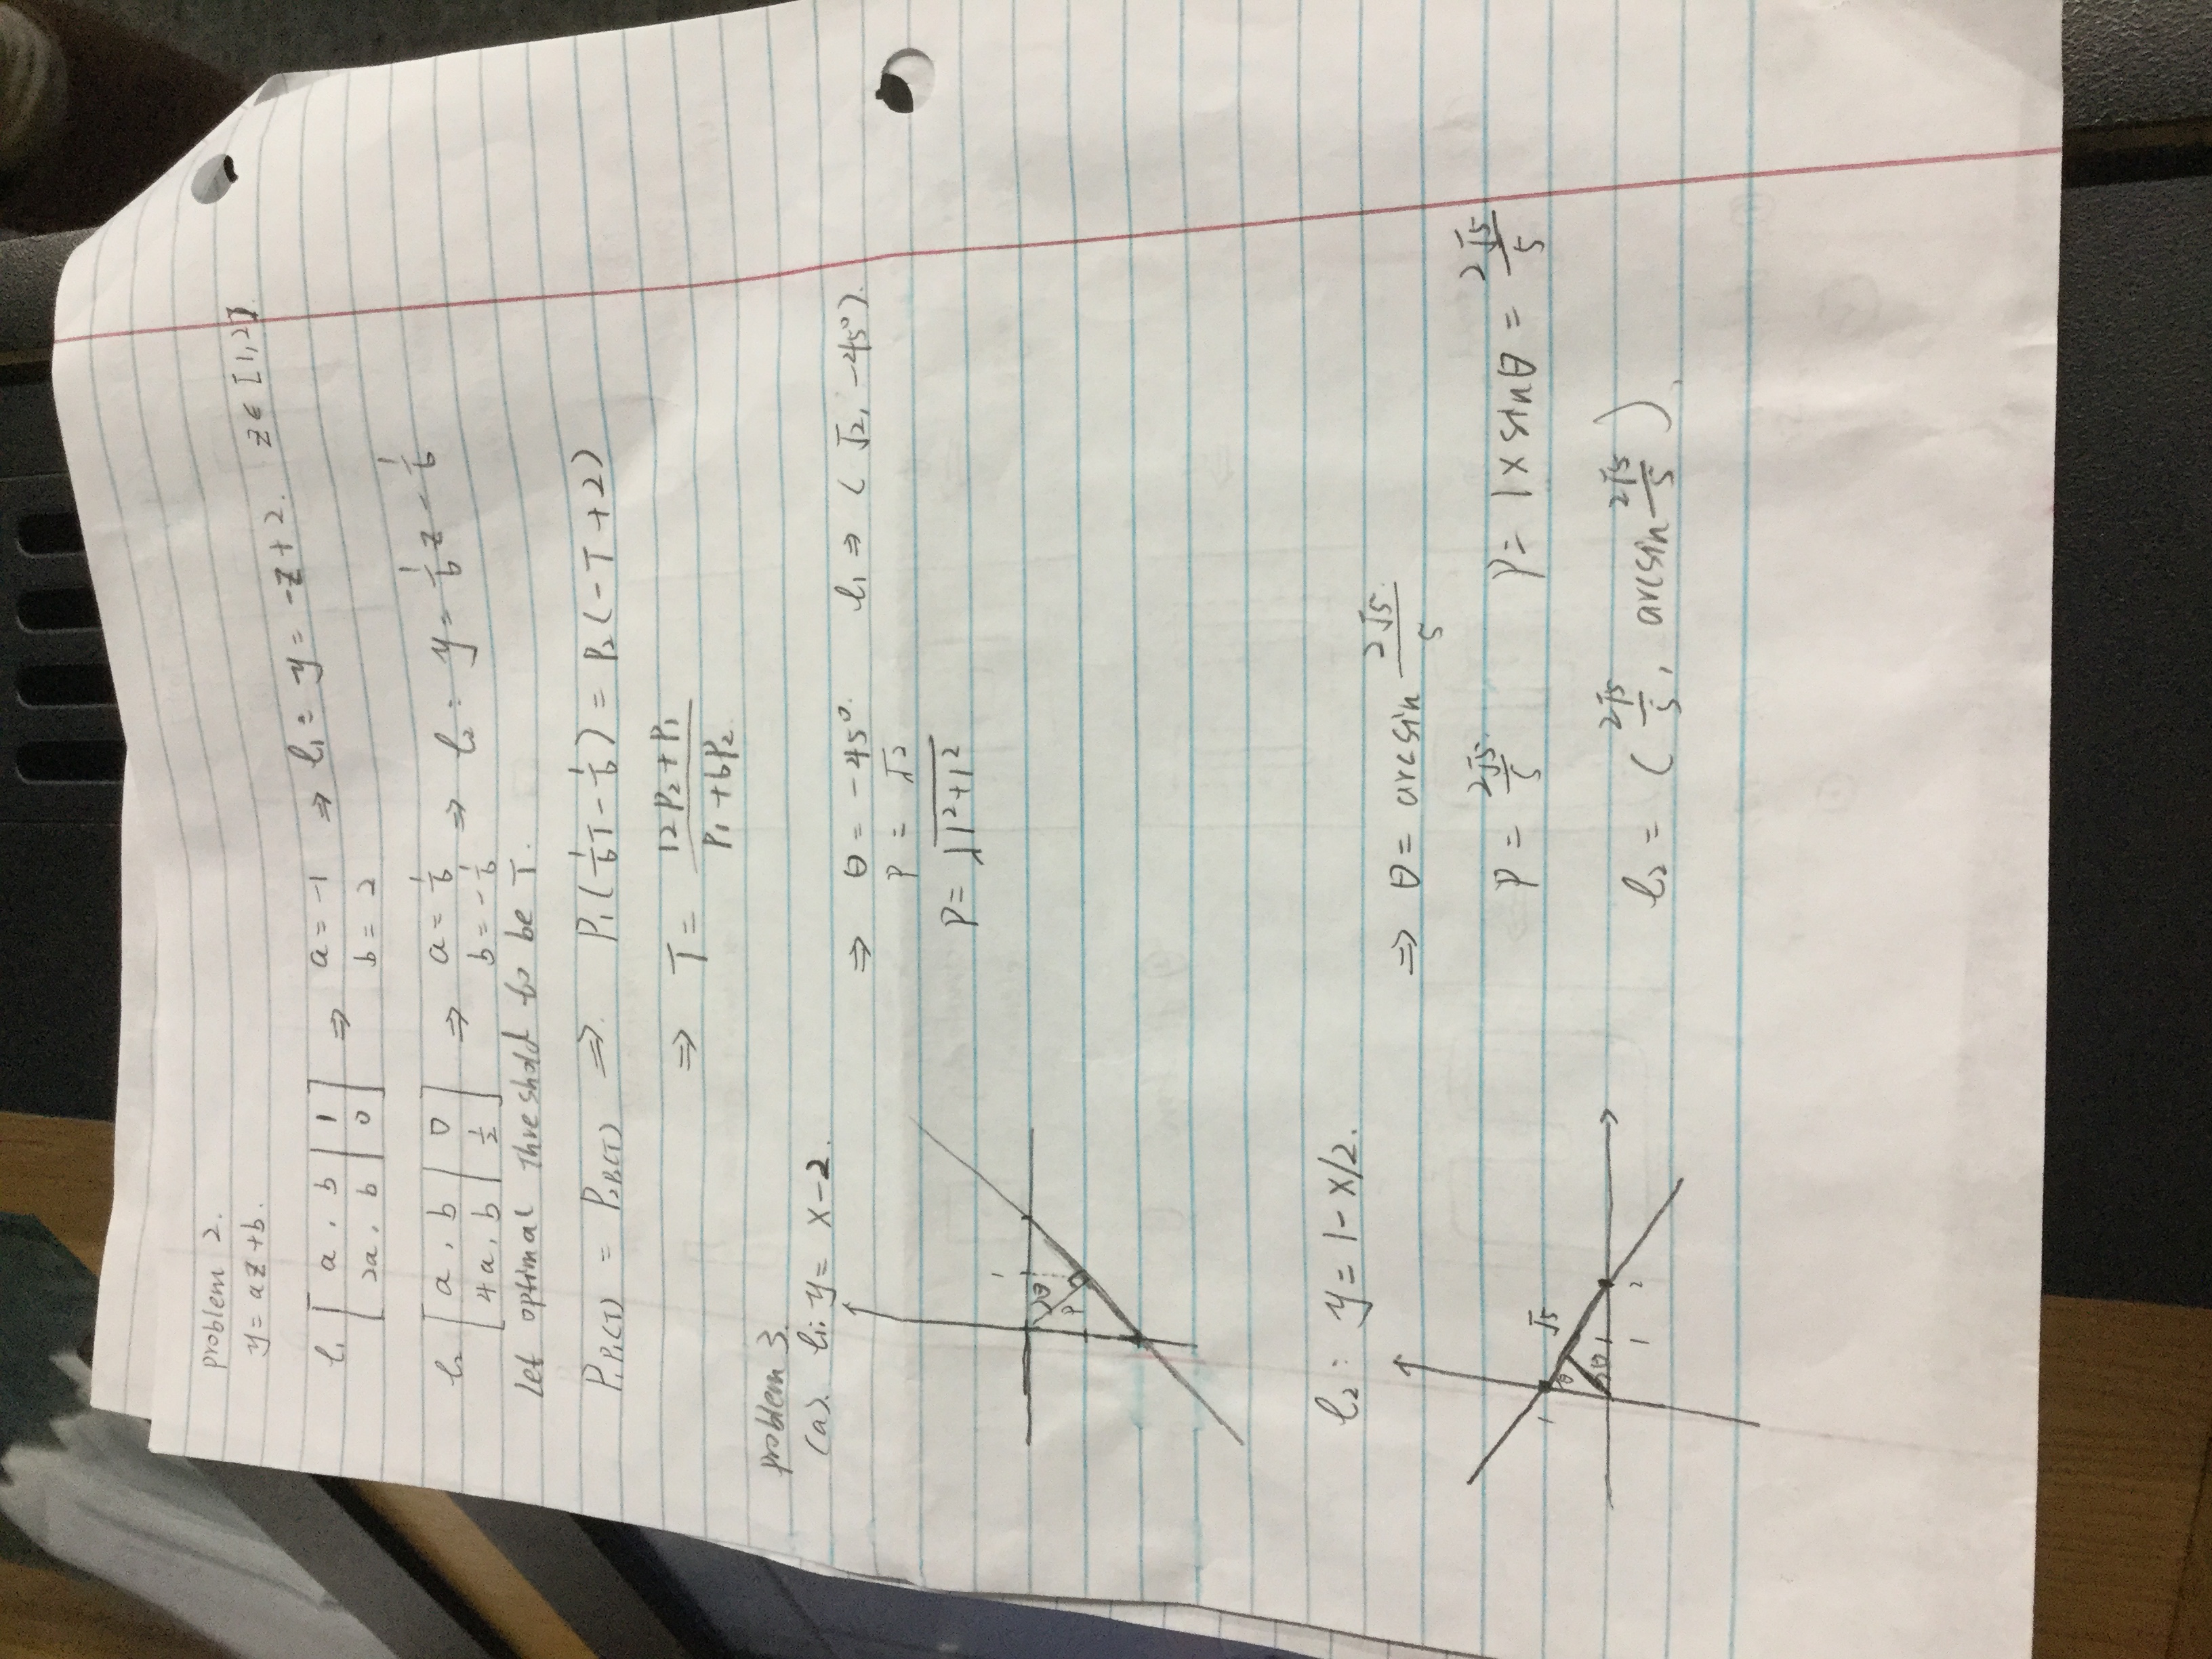 problem 2.
y = az + b.
l₁ [ a , b | 1 ] ⇒ a = -1 ⇒ l₁ : y = -z + 2. z ∈ [1,2].
[ 2a , b | 0 ] b = 2
l₂ [ a , b | 0 ] ⇒ a = 1/6 ⇒ l₂ : y = 1/6 z - 1/6
[ 4a , b | 1/2 ] b = -1/6
Let optimal threshold to be T.
P₁P₁(T) = P₂P₂(T) ⇒ P₁(1/6 T - 1/6) = P₂(-T + 2)
⇒ T = (12P₂ + P₁)/(P₁ + 6P₂)
problem 3.
(a). l₁: y = x - 2.
⇒ θ = -45°. l₁ ⇒ (√2, -45°).
P = √2
P = √(1² + 1²)
1
θ
P
l₂ : y = 1 - x/2.
⇒ θ = arcsin 2√5/5
P = 2√5/5 P = 1 × sinθ = 2√5/5
1 θ √5
θ
1 2
l₂ = (2√5/5, arcsin 2√5/5).